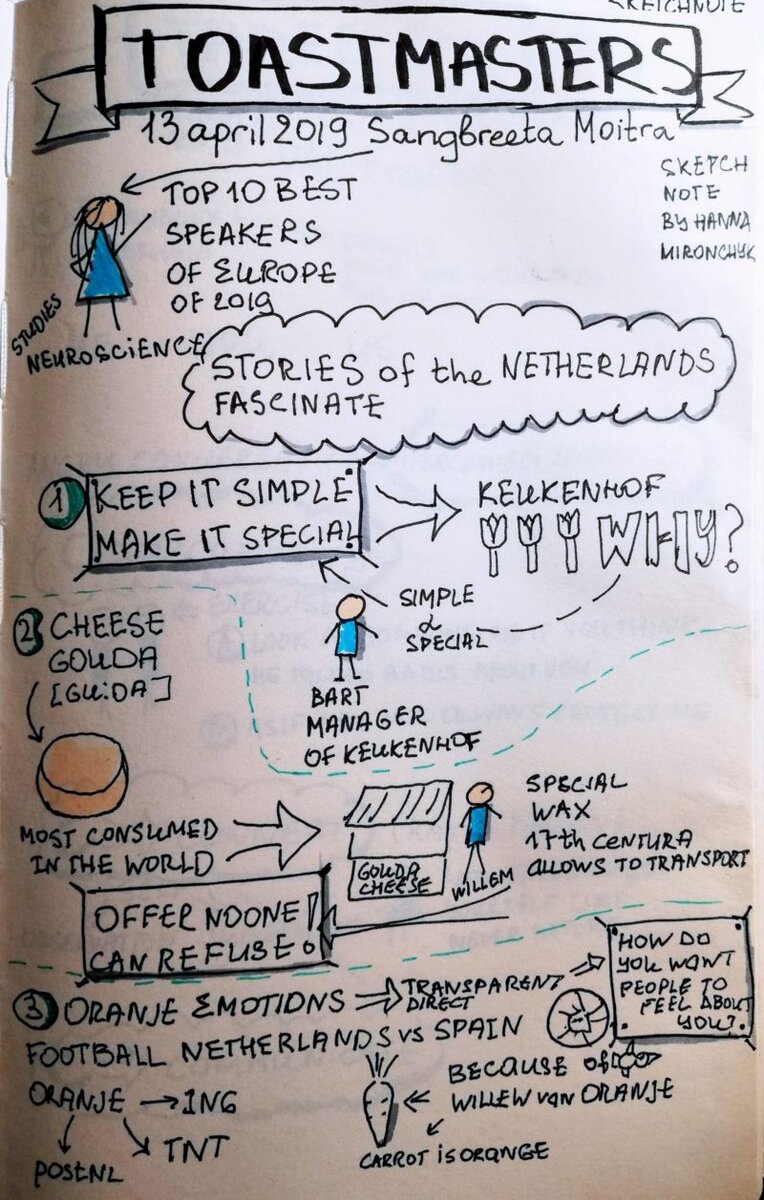 SKETCHNOTE
TOASTMASTERS
13 april 2019 Sangbreeta Moitra
SKETCH
NOTE
BY HANNA
MIRONCHYK
TOP 10 BEST
SPEAKERS
OF EUROPE
OF 2019
STUDIES
NEUROSCIENCE
STORIES of the NETHERLANDS
FASCINATE
1 KEEP IT SIMPLE
MAKE IT SPECIAL
KEUKENHOF
WHY?
SIMPLE
&
SPECIAL
BART
MANAGER
OF KEUKENHOF
2 CHEESE
GOUDA
[GUiDA]
MOST CONSUMED
IN THE WORLD
GOUDA
CHEESE
WILLEM
SPECIAL
WAX
17th CENTURA
ALLOWS TO TRANSPORT
OFFER NOONE
CAN REFUSE!
3 ORANJE EMOTIONS
TRANSPARENT
DIRECT
HOW DO
YOU WANT
PEOPLE TO
FEEL ABOUT
YOU?
FOOTBALL NETHERLANDS vs SPAIN
ORANJE
ING
TNT
POSTNL
BECAUSE of
WILLEW van ORANJE
CARROT is ORANGE